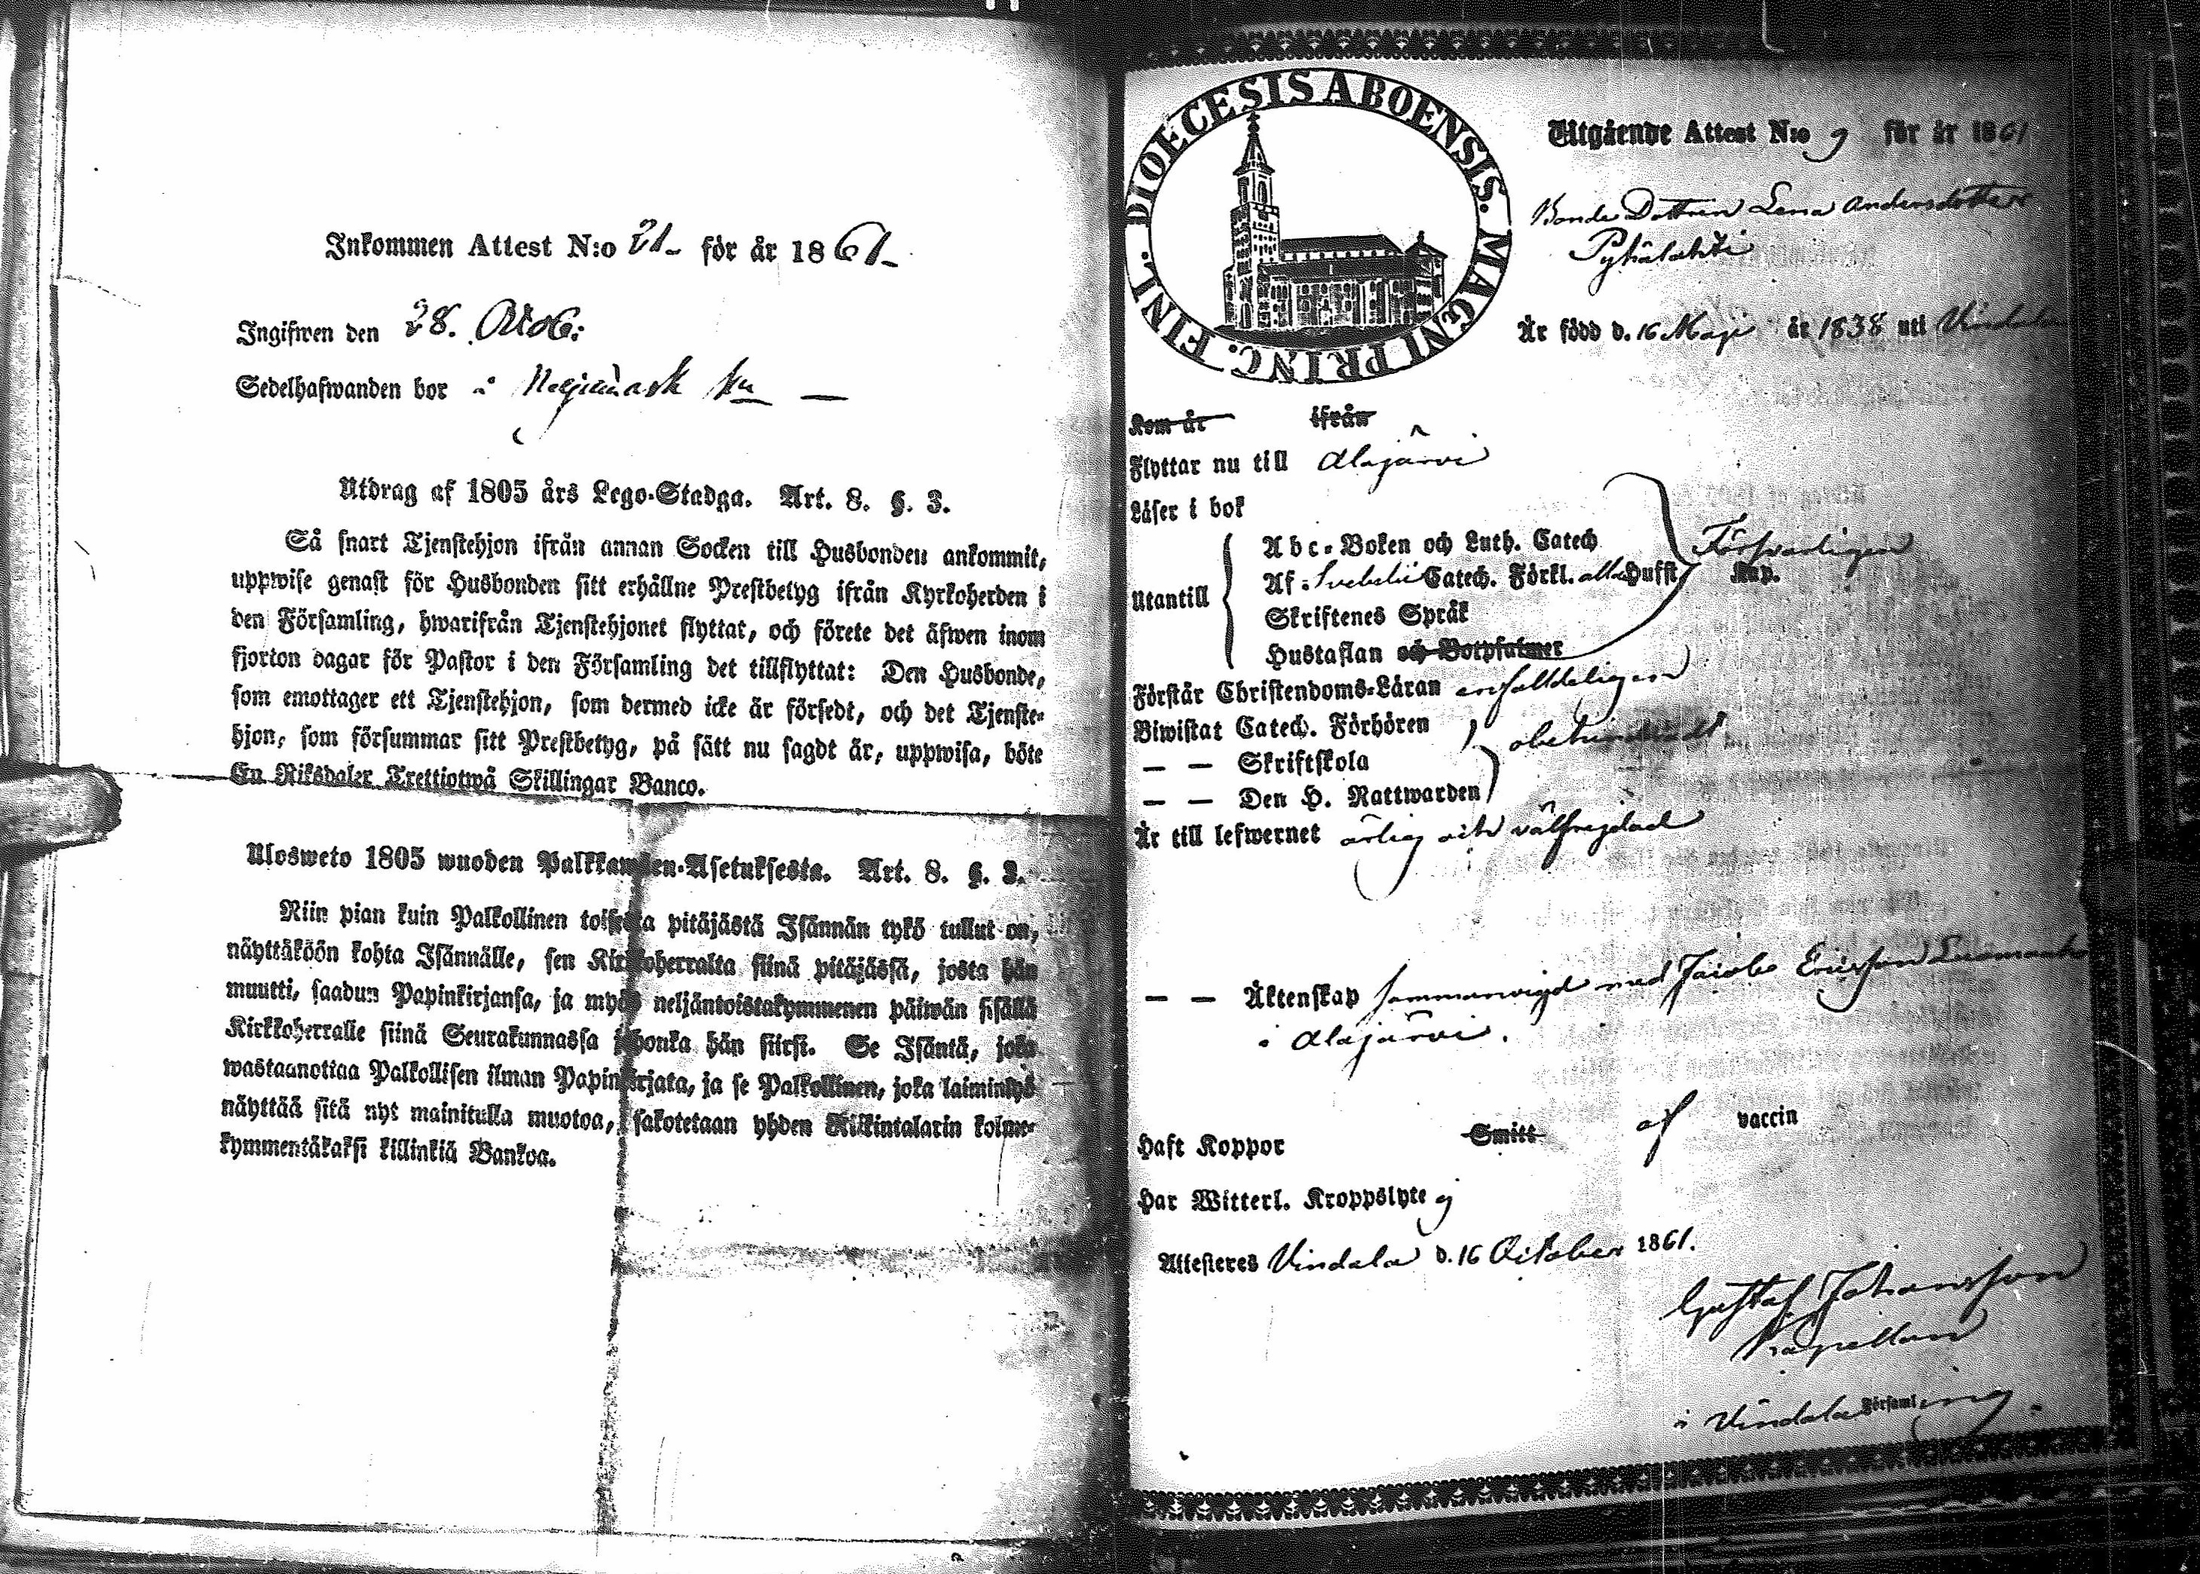 Inkommen Attest N:o 21. för år 1861.
Ingifwen den 28. Octob:
Sedelhafwanden bor å
Utdrag af 1805 års Lego-Stadga. Art. 8. §. 3.
Så snart Tjenstehjon ifrån annan Socken till Husbonden ankommit,
uppwise genast för Husbonden sitt erhållne Prestbetyg ifrån Kyrkoherden i
den Församling, hwarifrån Tjenstehjonet flyttat, och förete det äfwen inom
fjorton dagar för Pastor i den Församling det tillflyttat: Den Husbonde,
som emottager ett Tjenstehjon, som dermed icke är försedt, och det Tjenste-
hjon, som försummar sitt Prestbetyg, på sätt nu sagdt är, uppwisa, böte
En Riksdaler Trettiotwå Skillingar Banco.
Ulosweto 1805 wuoden Palkkawäen-Asetuksesta. Art. 8. §. 3.
Niin pian kuin Palkollinen toisesta pitäjästä Isännän tykö tullut on,
näyttäköön kohta Isännälle, sen Kirkkoherralta siinä pitäjässä, josta hän
muutti, saadun Papinkirjansa, ja myös neljäntoistakymmenen päiwän sisällä
Kirkkoherralle siinä Seurakunnassa johonka hän siirsi. Se Isäntä, joka
wastaanottaa Palkollisen ilman Papinkirjata, ja se Palkollinen, joka laiminlyö
näyttää sitä nyt mainitulla muotoa, sakotetaan yhden Riikintalarin kolme-
kymmentäkaksi killinkiä Bankoa.
DIOECESIS ABOENSIS. MAGNI PRINC. FINL.
Utgående Attest N:o 9 för år 1861
Bonde Dottren Lena Andersdotter
Pyhälahti
Är född d. 16 Maji år 1838 uti Vindala
Kom år ifrån
Flyttar nu till Alajärvi
Läser i bok
Abc-Boken och Luth. Catech Försvarligen
Utantill Af Svebelii Catech. Förkl. alla Hufst. Kap.
Skriftenes Språk
Hustaflan och Botpsalmer
Förstår Christendoms-Läran enfalldeligen
Biwistat Catech. Förhören obehindradt
— — Skriftskola
— — Den H. Nattwarden
Är till lefwernet ärlig och välfrejdad
— — Äktenskap sammanvigd med Jacob Ericsson
i Alajärvi.
Haft Koppor Smitt af vaccin
Har Witterl. Kroppslyte ej
Attesteres Vindala d. 16 October 1861.
Gustaf Johansson
Kapellan
i Vindala Församling.